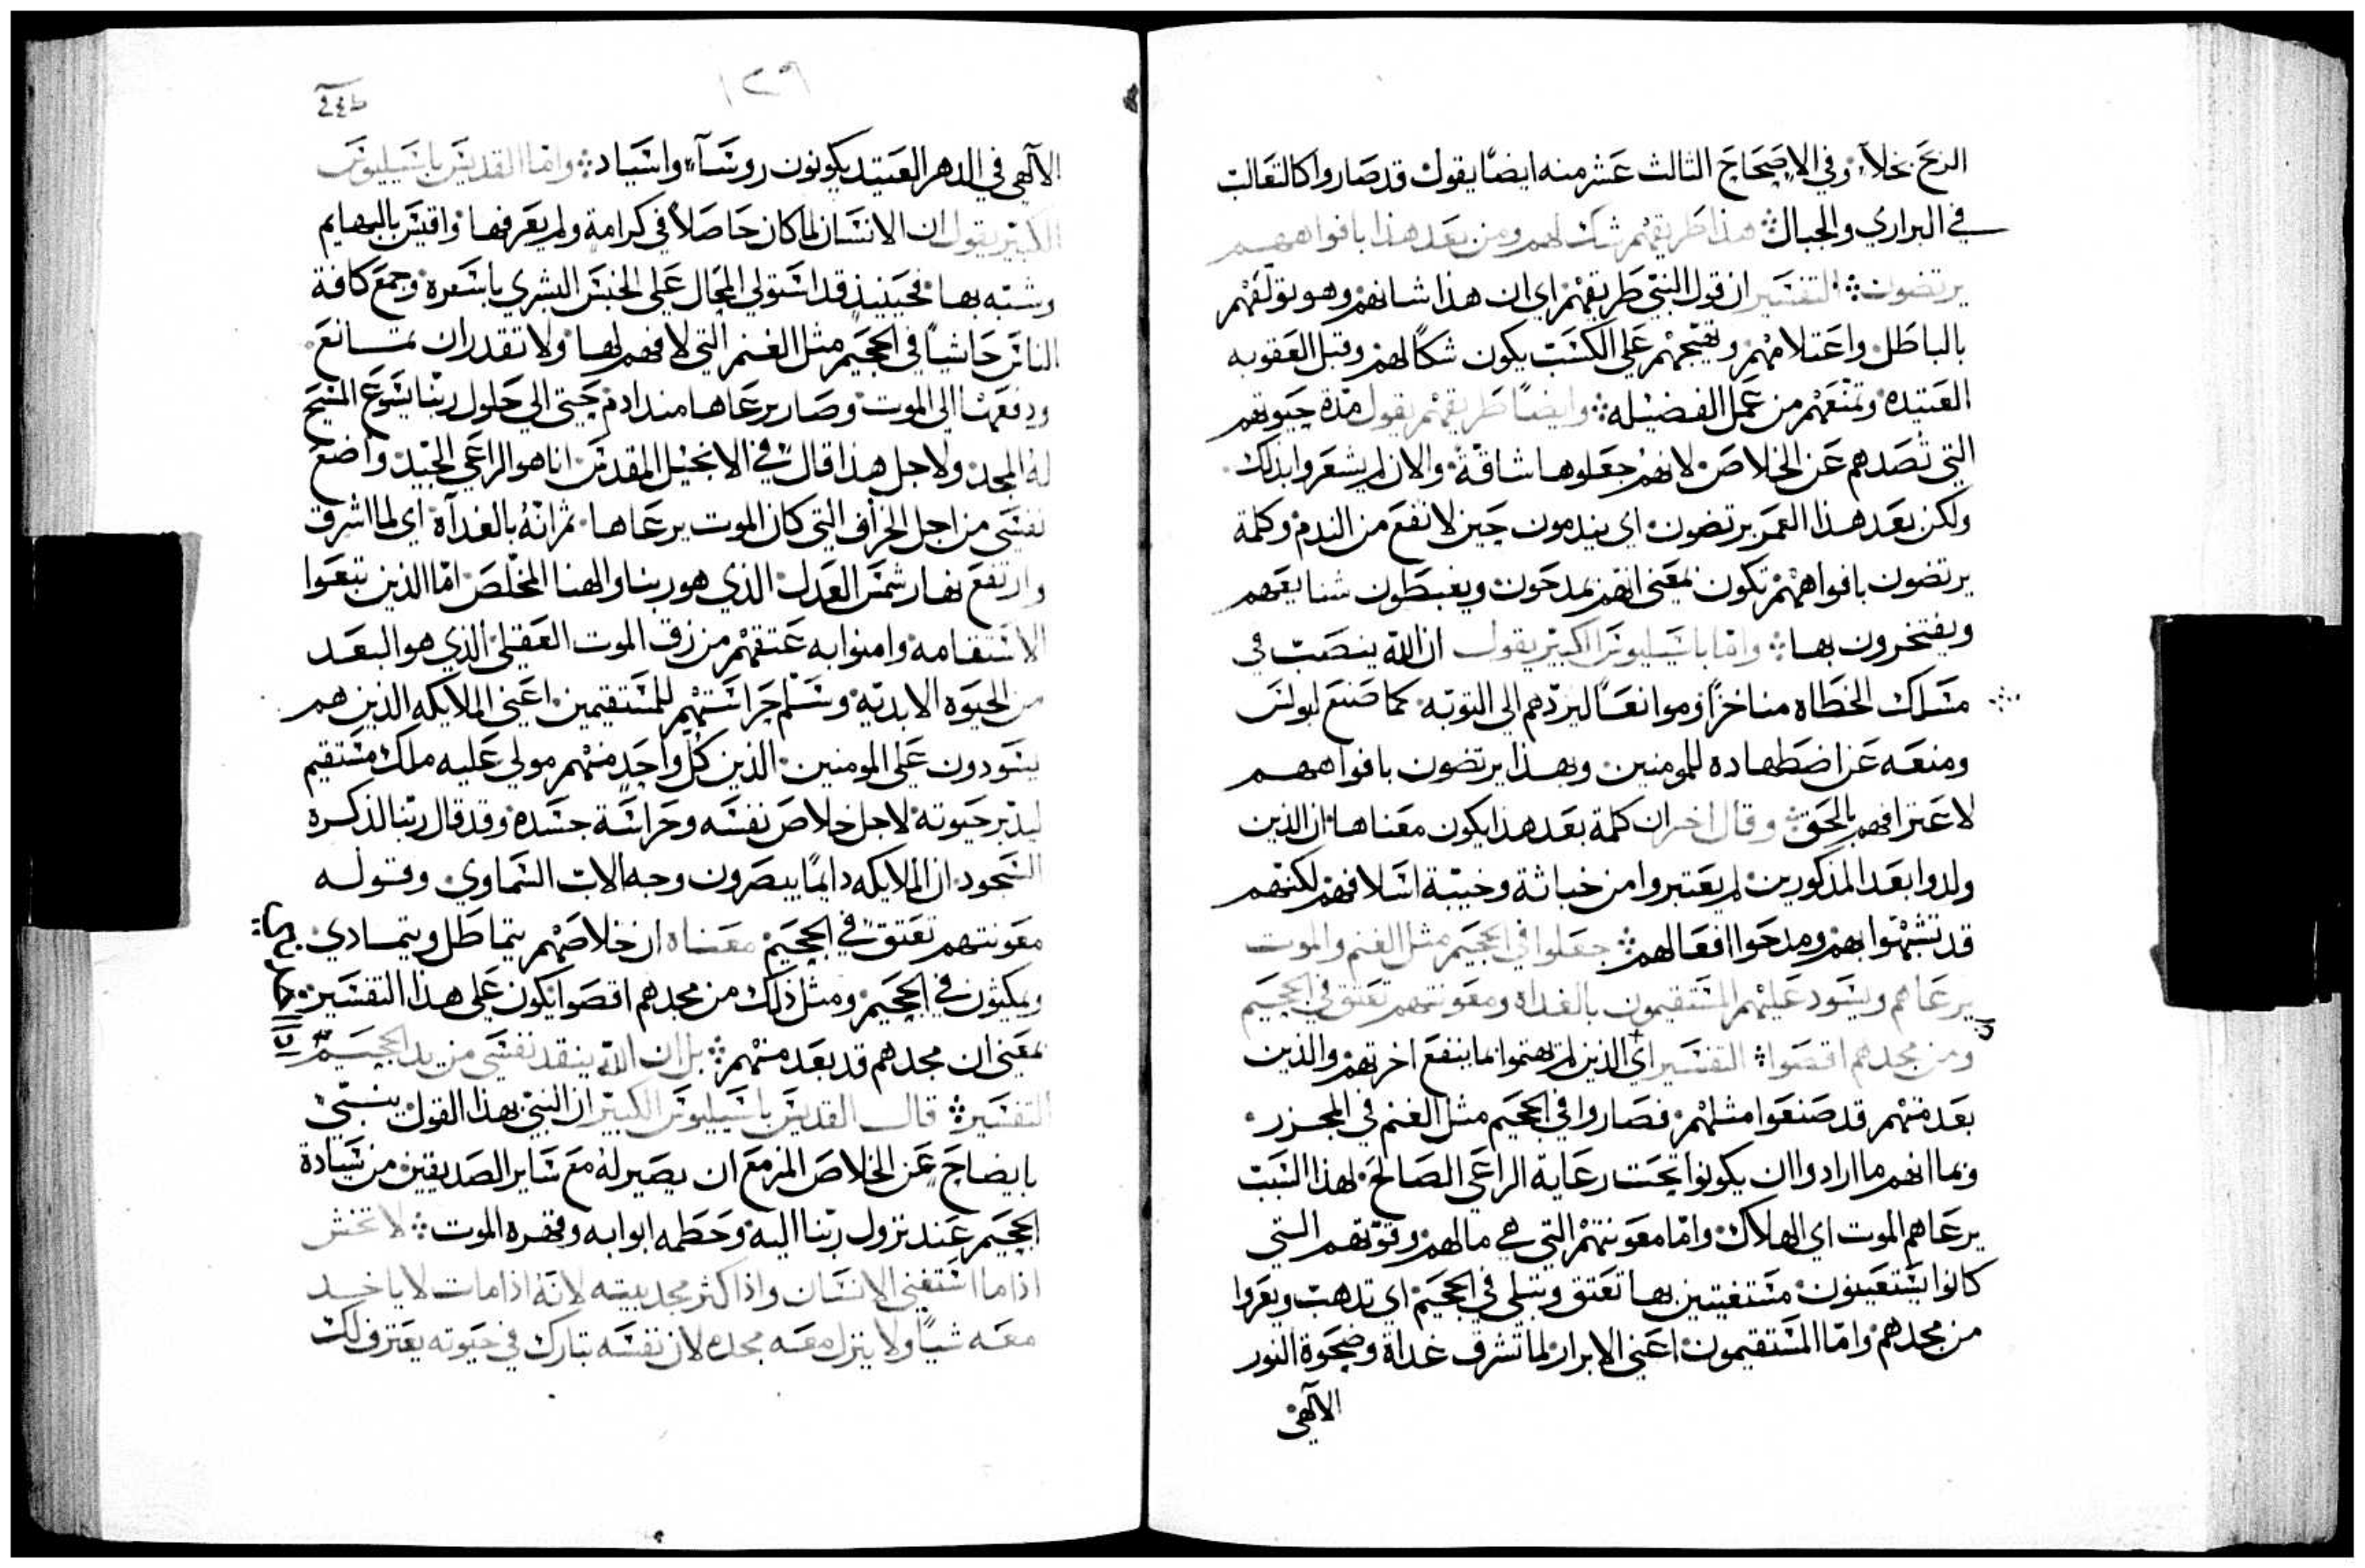 الزنح بخلاً، وفي الاصحاح الثالث عشر منه ايضًا يقول قد صاروا كالثعالب
في البراري والجبال ܀ هذا طريقهم شك لهم ومن بعد هذا بافواههم
يرتضون ܀ التفسير ان قول النبي طريقهم اي ان هذا شانهم وهو تولعهم
بالباطل واعتلامهم وتهيجهم على الكسب يكون شكًا لهم وقبل العقوبه
العتيده وتمنعهم من عمل الفضيله ܀ وايضًا طريقهم يقول مدة حيوتهم
التي تصدهم عن الخلاص لانهم جعلوها شاقة والان لم يشعروا بذلك
ولكن بعد هذا العمر يرتضون اي يندمون حين لا نفع من الندم وكلمة
يرتضون بافواههم تكون بمعنى انهم يمدحون ويغبطون شنايعهم
ويفتخرون بها ܀ واما باسيليوس الكبير يقول ان الله ينصب في
مسلك الخطاه مناخزًا وموانعًا ليردهم الى التوبه كما صنع لبولس
ومنعه عن اضطهاده للمومنين وبهذا يرتضون بافواههم
لاعترافهم بالحق ܀ وقال اخر ان كلمة بعد هذا يكون معناها ان الذين
ولدوا بعد المذكورين لم يعتبروا من خباثة وخيبة اسلافهم لكنهم
قد تشبهوا بهم ومدحوا افعالهم ܀ جعلوا في الجحيم مثل الغنم والموت
يرعاهم ويسود عليهم المستقيمون بالغداه ومعونتهم تعتق في الجحيم
ومن مجدهم اقصوا ܀ التفسير اي الذين لم يهتموا بما ينفع اخرتهم والذين
بعد منهم قد صنعوا مثلهم فصاروا في الجحيم مثل الغنم في المجزر
وبما انهم ما ارادوا ان يكونوا تحت رعاية الراعي الصالح لهذا السبب
يرعاهم الموت اي الهلاك واما معونتهم التي هي مالهم وقوتهم التي
كانوا يستعينون مستغيتين بها تعتق وتبلى في الجحيم اي تذهب ويعروا
من مجدهم واما المستقيمون اعني الابرار لما تشرق غداة وضحوة النور
الآلهي
١٣٩
الآلهي في الدهر العتيد يكونون روسآء واسياد ܀ واما القديس باسيليوس
الكبير يقول ان الانسان لما كان حاصلاً في كرامة ولم يعرفها واقيس بالبهايم
وشبه بها فحينيذ قد استولى المحال على الجنس البشري باسره وجمع كافة
الناس حاشيًا في الجحيم مثل الغنم التي لا فهم لها ولا تقدر ان تمانع
ودفعها الى الموت وصار يرعاها منذ ادم حتى الى حلول ربنا يسوع المسيح
له المجد ولاجل هذا قال في الانجيل المقدس انا هو الراعي الجيد واضع
نفسي من اجل الخراف التي كان الموت يرعاها ثم انه بالغدآة اي لما اشرق
وارتفع نهار شمس العدل الذي هو ربنا والهنا المخلص اما الذين تبعوا
الاستقامه وامنوا به عتقهم من رق الموت العقلي الذي هو البعد
من الحيوة الابدية وسلم حراستهم للمستقيمين اعني الملايكه الذين هم
يسودون على المومنين الذين كل واحد منهم مولي عليه ملك مستقيم
ليدبر حيوته لاجل خلاص نفسه وحراسة جسده وقد قال ربنا لذكره
السجود ان الملايكه دايمًا يبصرون وجه الاب السماوي وقوله
معونتهم تعتق في الجحيم معناه ان خلاصهم يتماطل ويتمادي
ويمكثون في الجحيم ومثل ذلك من مجدهم اقصوا يكون على هذا التفسير
بمعنى ان مجدهم قد بعد منهم ܀ بل ان الله ينقذ نفسي من يد الجحيم
التفسير ܀ قال القديس باسيليوس الكبير ان النبي بهذا القول ينبي
بايضاح عن الخلاص المزمع ان يصير له مع ساير الصديقين من سيادة
الجحيم عند نزول ربنا اليه وحطمه ابوابه وقهره الموت ܀ لا تخش
اذا ما استغنى الانسان واذا كثر مجد بيته لانه اذا مات لا ياخد
معه شيًا ولا ينزل معه مجده لان نفسه تبارك في حيوته يعترف لك